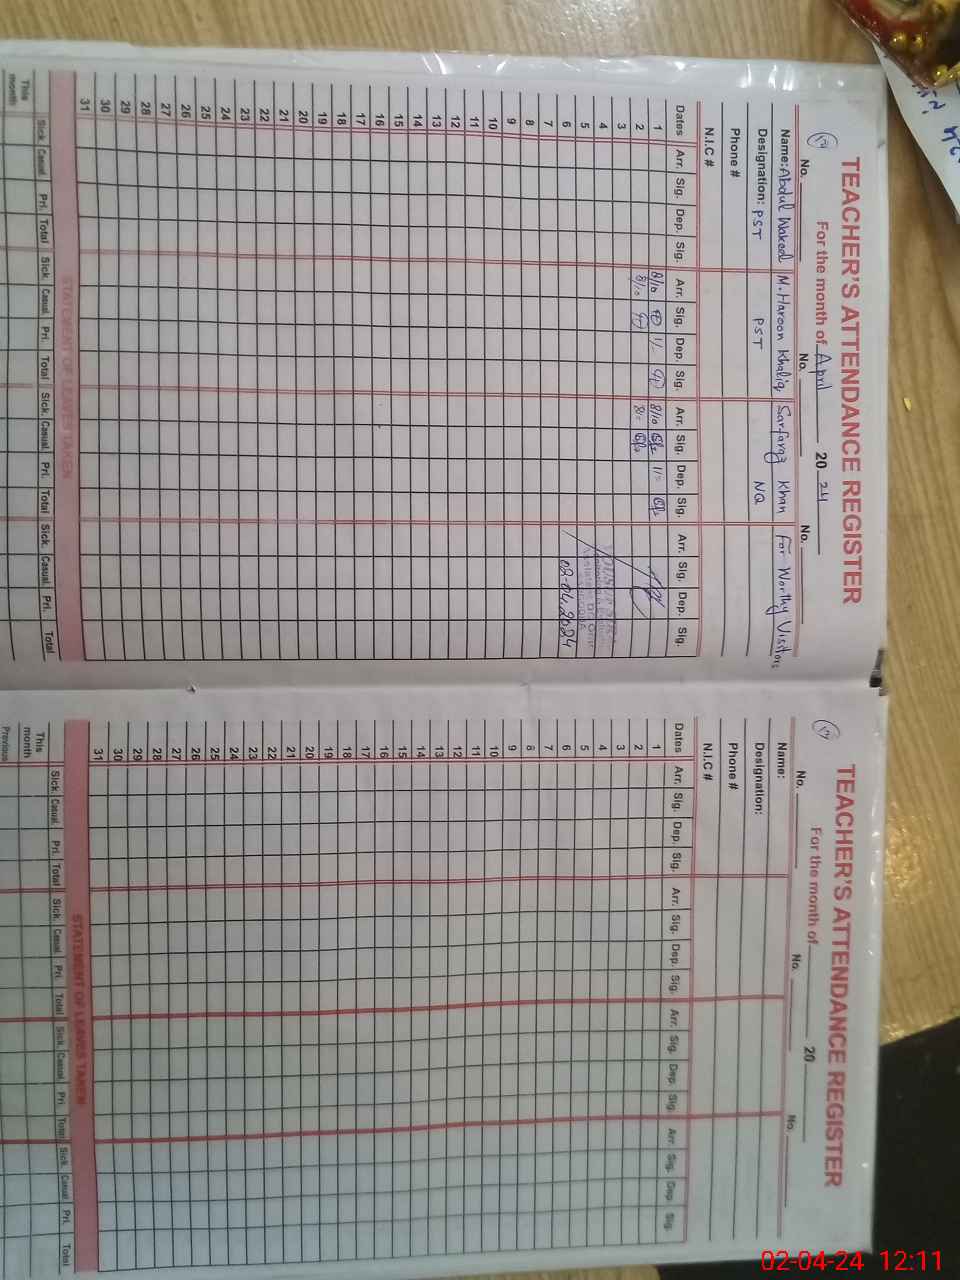 TEACHER'S ATTENDANCE REGISTER
For the month of April 2024
No. No. No.
Name: Abdul Waheed M. Haroon Khaliq Sarfaraz Khan For Worthy Visitors
Designation: PST PST NQ
Phone #
N.I.C #
Dates Arr. Sig. Dep. Sig. Arr. Sig. Dep. Sig. Arr. Sig. Dep. Sig. Arr. Sig. Dep. Sig.
1 8/10 8/10
2 8/10
3
4
5
6 02-04-2024
7
8
9
10
11
12
13
14
15
16
17
18
19
20
21
22
23
24
25
26
27
28
29
30
31
STATEMENT OF LEAVES TAKEN
Sick. Casual. Pri. Total Sick. Casual. Pri. Total Sick. Casual. Pri. Total Sick. Casual. Pri. Total
This month
TEACHER'S ATTENDANCE REGISTER
For the month of 20
No. No. No.
Name:
Designation:
Phone #
N.I.C #
Dates Arr. Sig. Dep. Sig. Arr. Sig. Dep. Sig. Arr. Sig. Dep. Sig. Arr. Sig. Dep. Sig.
1
2
3
4
5
6
7
8
9
10
11
12
13
14
15
16
17
18
19
20
21
22
23
24
25
26
27
28
29
30
31
STATEMENT OF LEAVES TAKEN
Sick. Casual. Pri. Total Sick. Casual. Pri. Total Sick. Casual. Pri. Total Sick. Casual. Pri. Total
This month
Previous
02-04-24 12:11